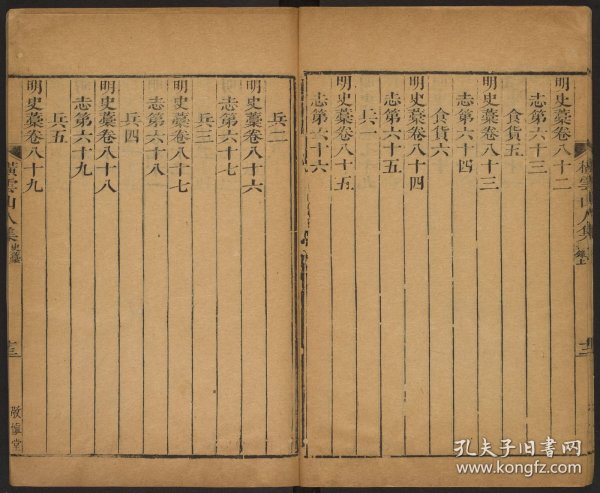 明史藁卷八十二
志第六十三
食貨五
明史藁卷八十三
志第六十四
食貨六
明史藁卷八十四
志第六十五
兵一
明史藁卷八十五
志第六十六
橫雲山人集
兵二
明史藁卷八十六
志第六十七
兵三
明史藁卷八十七
志第六十八
兵四
明史藁卷八十八
志第六十九
兵五
明史藁卷八十九
橫雲山人集 史藁
十三
敬慎堂
孔夫子旧书网
www.kongfz.com